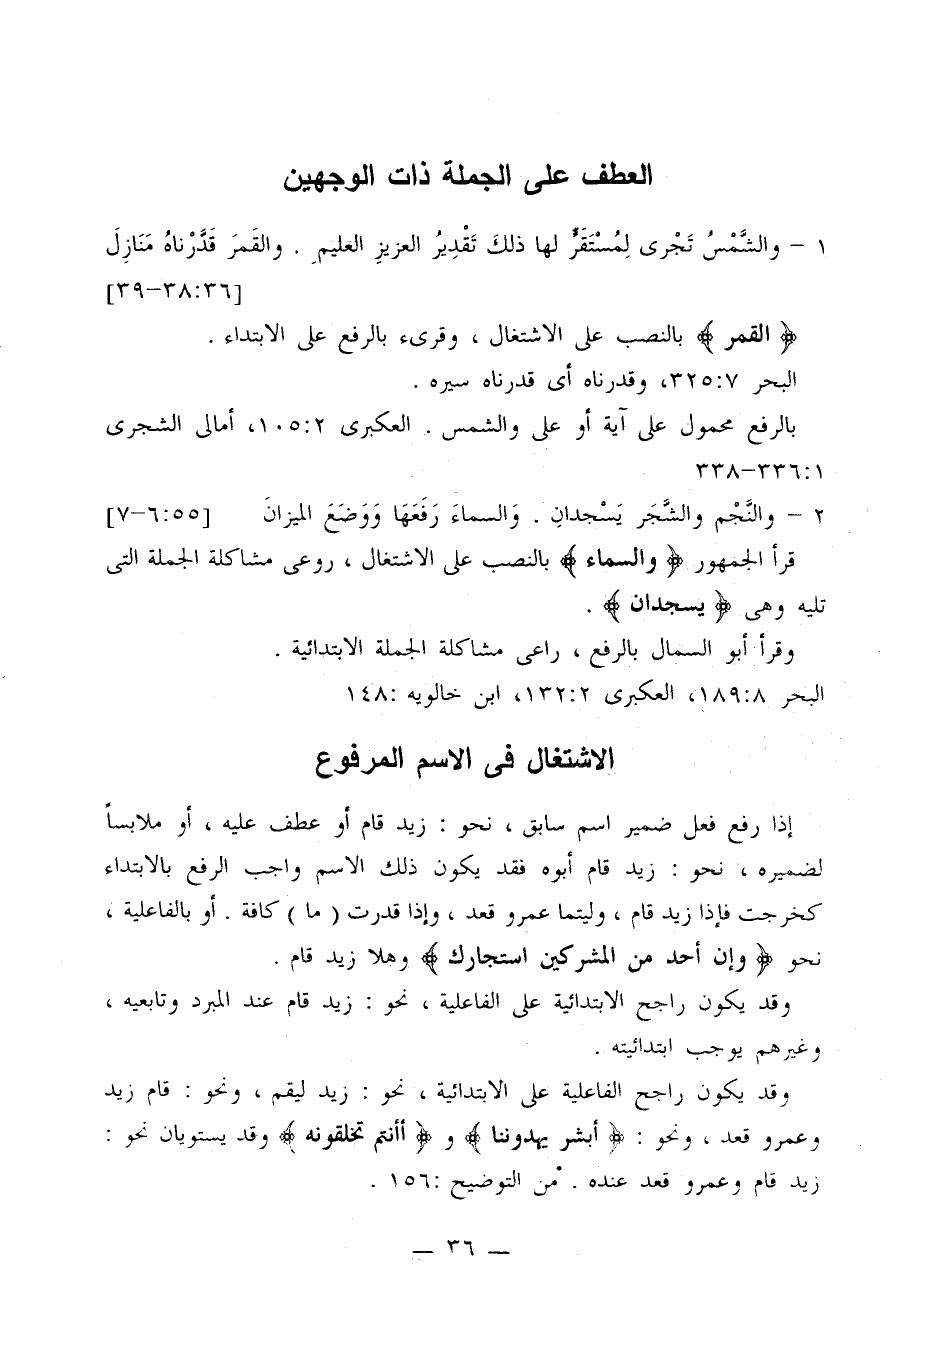 العطف على الجملة ذات الوجهين
١ – والشَّمْسُ تَجْرى لِمُسْتَقَرٍّ لها ذلكَ تَقْدِيرُ العزيزِ العليمِ . والقَمَرَ قَدَّرْناهُ مَنَازِلَ
[٣٦:٣٨–٣٩]
﴿ القمر ﴾ بالنصب على الاشتغال ، وقرىء بالرفع على الابتداء .
البحر ٧:٣٢٥، وقدرناه أى قدرناه سيره .
بالرفع محمول على آية أو على والشمس . العكبرى ٢:١٠٥، أمالى الشجرى
١:٣٣٦–٣٣٨
٢ – والنَّجْم والشَّجَر يَسْجدانِ . وَالسماءَ رَفَعَهَا وَوَضَعَ الميزانَ [٥٥:٦–٧]
قرأ الجمهور ﴿ والسماء ﴾ بالنصب على الاشتغال ، روعى مشاكلة الجملة التى
تليه وهى ﴿ يسجدان ﴾ .
وقرأ أبو السمال بالرفع ، راعى مشاكلة الجملة الابتدائية .
البحر ٨:١٨٩، العكبرى ٢:١٣٢، ابن خالويه :١٤٨
الاشتغال فى الاسم المرفوع
إذا رفع فعل ضمير اسم سابق ، نحو : زيد قام أو عطف عليه ، أو ملابساً
لضميره ، نحو : زيد قام أبوه فقد يكون ذلك الاسم واجب الرفع بالابتداء
كخرجت فإذا زيد قام ، وليتما عمرو قعد ، وإذا قدرت ( ما ) كافة . أو بالفاعلية ،
نحو ﴿ وإن أحد من المشركين استجارك ﴾ وهلا زيد قام .
وقد يكون راجح الابتدائية على الفاعلية ، نحو : زيد قام عند المبرد وتابعيه ،
وغيرهم يوجب ابتدائيته .
وقد يكون راجح الفاعلية على الابتدائية ، نحو : زيد ليقم ، ونحو : قام زيد
وعمرو قعد ، ونحو : ﴿ أبشر يهدوننا ﴾ و ﴿ أأنتم تخلقونه ﴾ وقد يستويان نحو :
زيد قام وعمرو قعد عنده . من التوضيح :١٥٦ .
— ٣٦ —